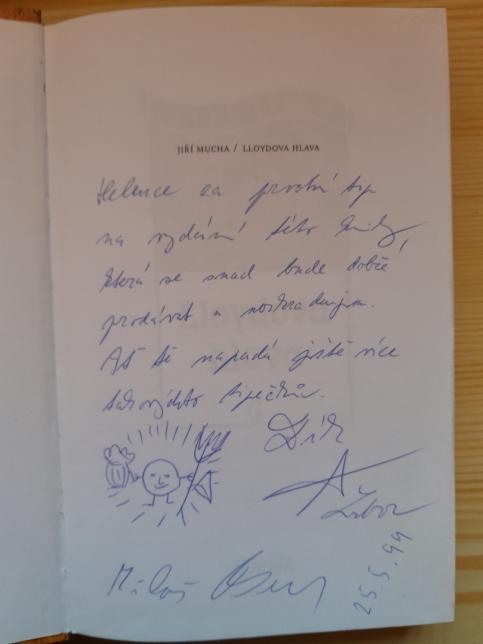 JIŘÍ MUCHA / LLOYDOVA HLAVA
Helence za prvotní tip
na vydání této knihy,
která se snad bude dobře
prodávat a neprodělujem.
Ať tě napadá ještě více
takovýchto tipečků.
Dík
Libor
Miloš
25.5.99